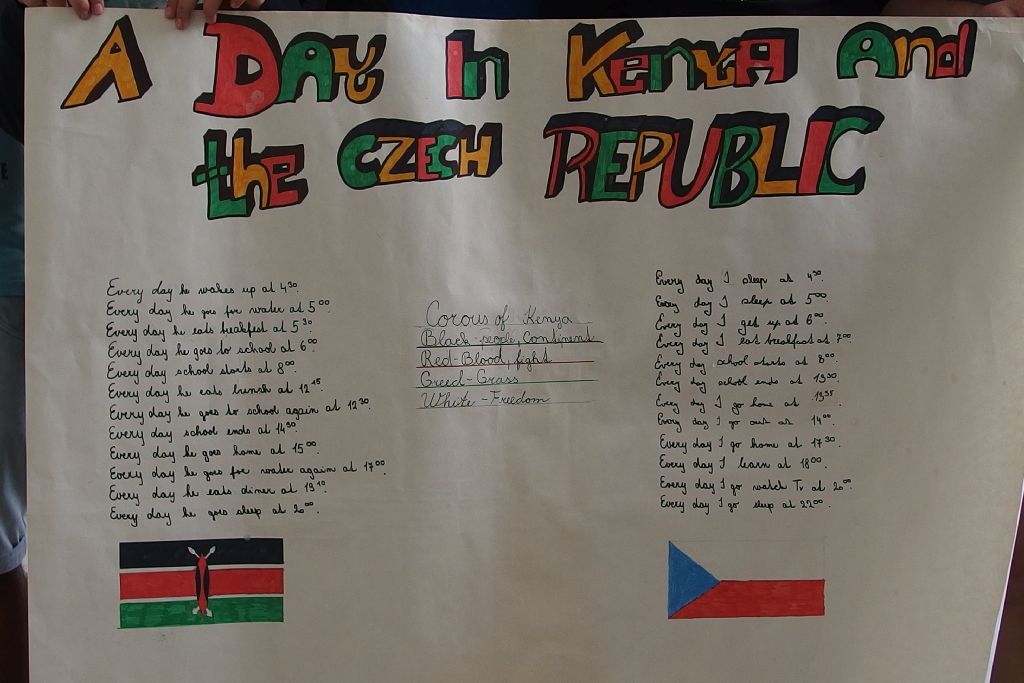 A Day In Kenya And
the CZECH REPUBLIC
Every day he wakes up at 4³⁰
Every day he goes for water at 5⁰⁰.
Every day he eats breakfest at 5³⁰
Every day he goes to school at 6⁰⁰.
Every day school starts at 8⁰⁰.
Every day he eats lunch at 12¹⁵.
Every day he goes to school again at 12³⁰.
Every day school ends at 14³⁰.
Every day he goes home at 15⁰⁰.
Every day he goes for water again at 17⁰⁰.
Every day he eats dinner at 19¹⁰.
Every day he goes sleep at 20⁰⁰.
Corous of Kenya
Black-people, Continent
Red-Blood, fight
Greed-Grass
White-Freedom
Every day I sleep at 4³⁰.
Every day I sleep at 5⁰⁰.
Every day I get up at 6⁰⁰.
Every day I eat breakfast at 7⁰⁰
Every day school starts at 8⁰⁰.
Every day school ends at 13³⁰.
Every day I go home at 13³⁵
Every day I go out at 14⁰⁰.
Every day I go home at 17³⁰.
Every day I learn at 18⁰⁰.
Every day I go watch Tv at 20⁰⁰.
Every day I go sleep at 22⁰⁰.